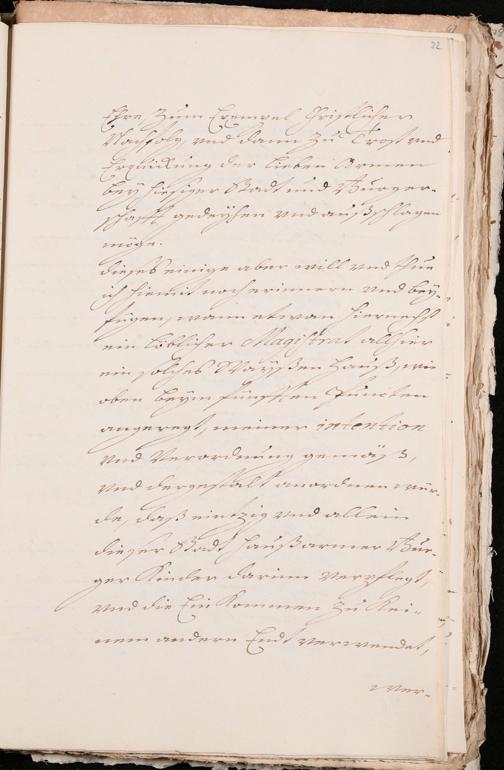 22
Ehre, zum Exempel Christlicher
Nachfolg, und dann zu Trost und
Erquickung der lieben Armen
bey hiesiger Stadt und Burger-
schafft gedeyhen und außschlagen
möge.
dieses einige aber will und thue
ich hiemit noch erinnern und bey-
fügen, wann etwan hiernechst
ein löblicher Magistrat allhier
ein solches Waÿßen Hauß, wie
oben beÿm fünfften Puncten
angeregt, meiner intention
und Verordnung gemäß,
und dergestalt anordnen wür-
de, daß eintzig und allein
dieser Stadt haußarmer Bur-
ger Kinder darinn verpflegt,
und die Ein Kommen zu kei-
nem andern Endt verwendet,
wer-